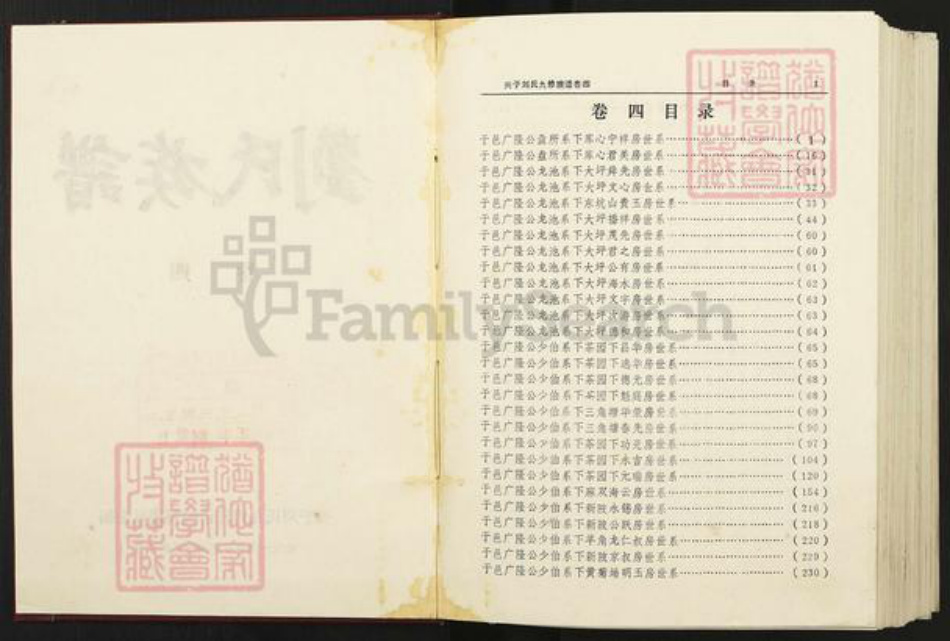 兴于刘氏九修族谱卷四 目 录 1
卷 四 目 录
于邑广隆公盘所系下库心宁祥房世系 (1)
于邑广隆公盘所系下库心君美房世系 (16)
于邑广隆公龙池系下大坪舜先房世系 (31)
于邑广隆公龙池系下大坪文心房世系 (32)
于邑广隆公龙池系下东坑山贵玉房世系 (33)
于邑广隆公龙池系下大坪播祥房世系 (44)
于邑广隆公龙池系下大坪茂先房世系 (60)
于邑广隆公龙池系下大坪君之房世系 (60)
于邑广隆公龙池系下大坪公有房世系 (61)
于邑广隆公龙池系下大坪海水房世系 (62)
于邑广隆公龙池系下大坪文宇房世系 (63)
于邑广隆公龙池系下大坪 房世系 (63)
于邑广隆公龙池系下大坪德和房世系 (64)
于邑广隆公少伯系下茶园下昌华房世系 (65)
于邑广隆公少伯系下茶园下 华房世系 (65)
于邑广隆公少伯系下茶园下德光房世系 (68)
于邑广隆公少伯系下茶园下魁庭房世系 (68)
于邑广隆公少伯系下三角塘华荣房世系 (69)
于邑广隆公少伯系下三角塘春先房世系 (96)
于邑广隆公少伯系下茶园下功光房世系 (97)
于邑广隆公少伯系下茶园下永吉房世系 (104)
于邑广隆公少伯系下茶园下元瑞房世系 (120)
于邑广隆公少伯系下麻双海云房世系 (154)
于邑广隆公少伯系下新陂永锡房世系 (216)
于邑广隆公少伯系下新陂公跃房世系 (218)
于邑广隆公少伯系下羊角龙仁叔房世系 (220)
于邑广隆公少伯系下新陂京叔房世系 (229)
于邑广隆公少伯系下黄菊坳明玉房世系 (230)
劉氏族譜
FamilySearch